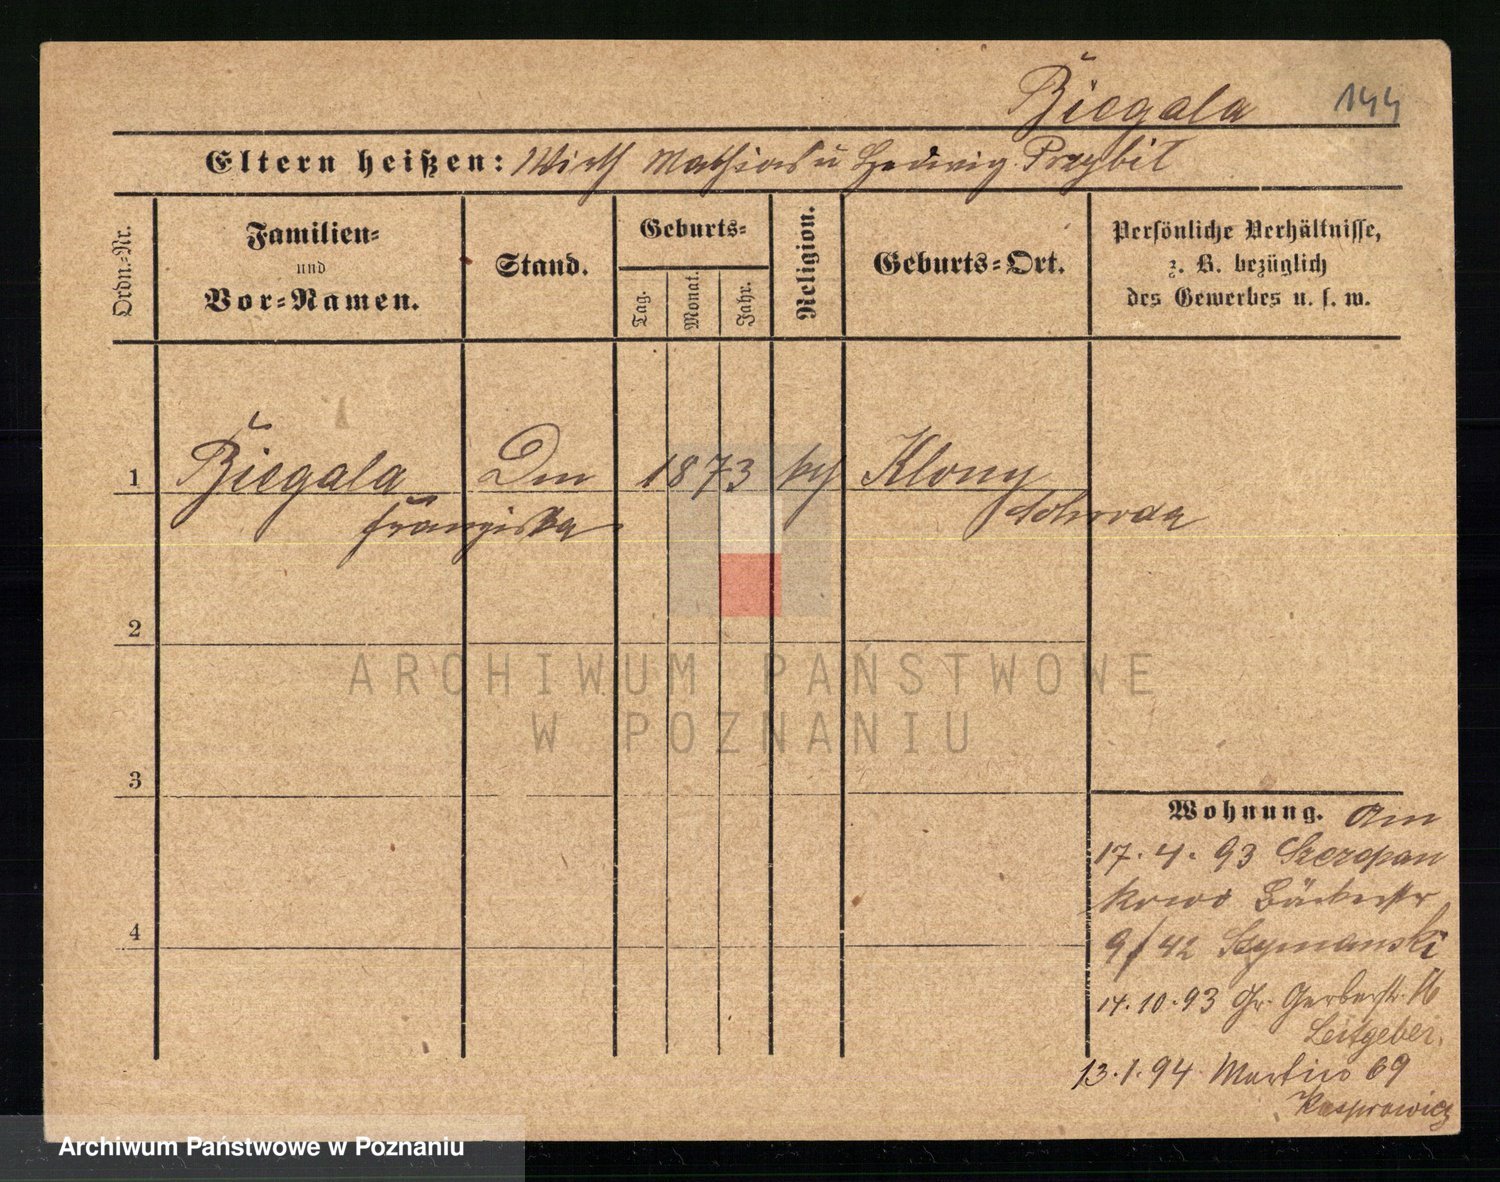 Biegala 144
Eltern heißen: Wirth Mathias u Hedwig Przybil
Ordn.-Nr.
Familien-
und
Vor-Namen.
Stand.
Geburts-
Tag.
Monat.
Jahr.
Religion.
Geburts-Ort.
Persönliche Verhältnisse,
z. B. bezüglich
des Gewerbes u. s. w.
1 Biegala 1873 kth Klony
Franziska Schroda
2
3
4
Wohnung. Am
17.4.93 Szczepan
kowo Bäckerstr
9/42 Szymanski
14.10.93 Gr. Gerberstr. 16
Leitgeber.
13.1.94 Martin 69
Kasprowicz
ARCHIWUM PAŃSTWOWE
W POZNANIU
Archiwum Państwowe w Poznaniu